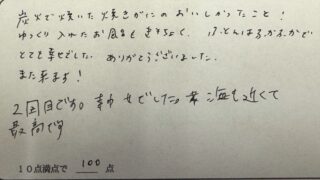 炭火で焼いた焼きがにのおいしかったこと!
ゆっくり入れたお風呂もきもちよく、ふとんはふかふかで
とても幸せでした。ありがとうございました。
また来ます!
2回目です。幸せでした。海も近くて
最高です
10点満点で 100 点